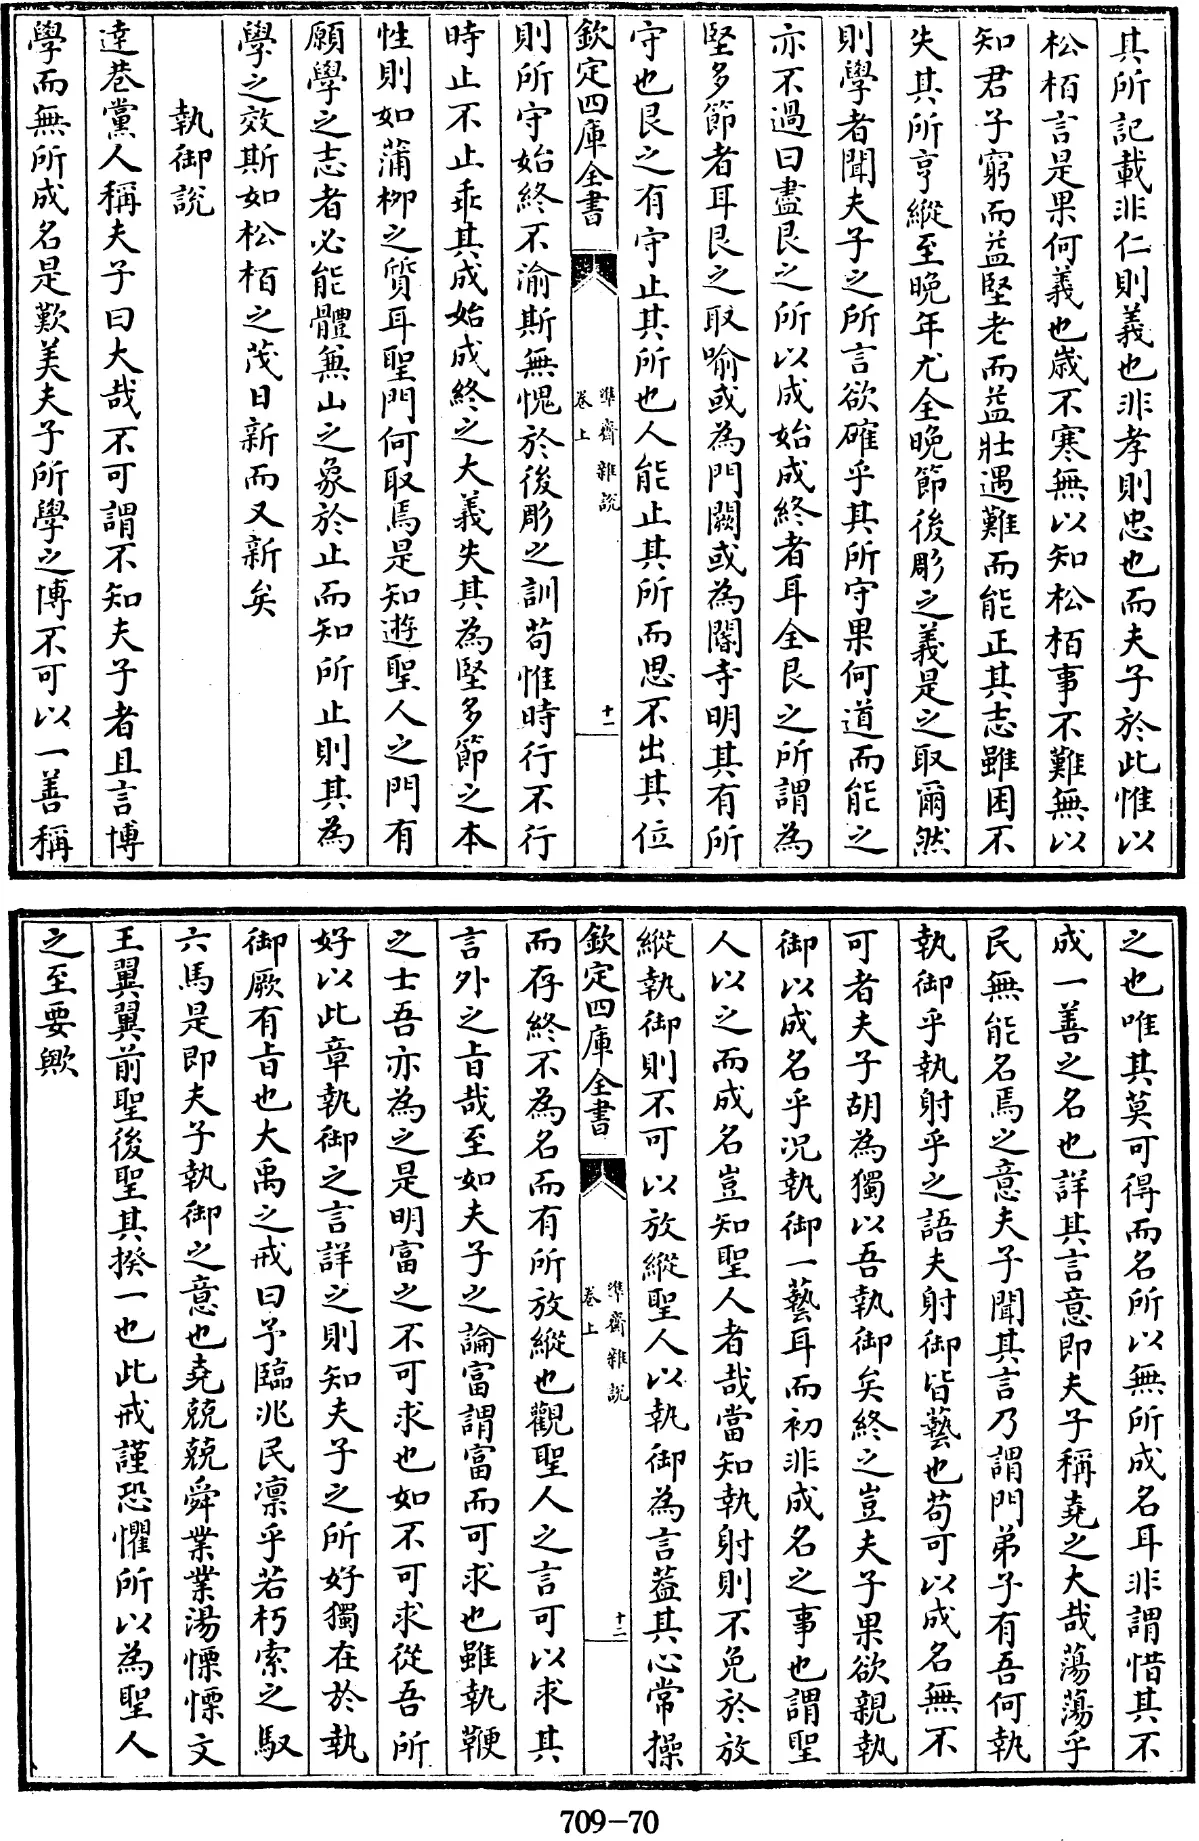 其所記載非仁則義也非孝則忠也而夫子於此惟以
松栢言是果何義也歳不寒無以知松栢事不難無以
知君子窮而益堅老而益壯遇難而能正其志雖困不
失其所亨縱至晚年尤全晚節後彫之義是之取爾然
則學者聞夫子之所言欲確乎其所守果何道而能之
亦不過曰盡艮之所以成始成終者耳全艮之所謂為
堅多節者耳艮之取喻或為門闕或為閽寺明其有所
守也艮之有守止其所也人能止其所而思不出其位
欽定四庫全書
準齋雜說
卷上
十一
則所守始終不渝斯無愧於後彫之訓苟惟時行不行
時止不止乖其成始成終之大義失其為堅多節之本
性則如蒲栁之質耳聖門何取焉是知遊聖人之門有
願學之志者必能體兼山之象於止而知所止則其為
學之效斯如松栢之茂日新而又新矣
執御說
達巷黨人稱夫子曰大哉不可謂不知夫子者且言博
學而無所成名是歎美夫子所學之博不可以一善稱
之也唯其莫可得而名所以無所成名耳非謂惜其不
成一善之名也詳其言意即夫子稱堯之大哉蕩蕩乎
民無能名焉之意夫子聞其言乃謂門弟子有吾何執
執御乎執射乎之語夫射御皆藝也苟可以成名無不
可者夫子胡為獨以吾執御矣終之豈夫子果欲親執
御以成名乎況執御一藝耳而初非成名之事也謂聖
人以之而成名豈知聖人者哉當知執射則不免於放
縱執御則不可以放縱聖人以執御為言蓋其心常操
欽定四庫全書
準齋雜說
卷上
十二
而存終不為名而有所放縱也觀聖人之言可以求其
言外之㫖哉至如夫子之論富謂富而可求也雖執鞭
之士吾亦為之是明富之不可求也如不可求從吾所
好以此章執御之言詳之則知夫子之所好獨在於執
御厥有㫖也大禹之戒曰予臨兆民凛乎若朽索之馭
六馬是即夫子執御之意也堯兢兢舜業業湯慄慄文
王翼翼前聖後聖其揆一也此戒謹恐懼所以為聖人
之至要歟
709-70